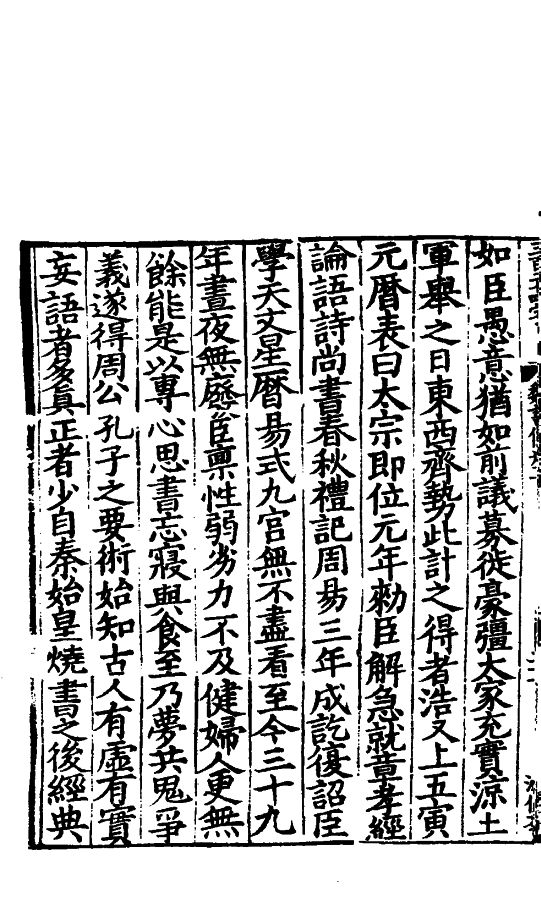 如臣愚意猶如前議募徙豪彊大家充實涼土
軍舉之日東西齊勢此計之得者浩又上五寅
元曆表曰太宗即位元年勑臣解急就章孝經
論語詩尚書春秋禮記周易三年成訖復詔臣
學天文星曆易式九宮無不盡看至今三十九
年晝夜無廢臣禀性弱劣力不及健婦人更無
餘能是以專心思書忘寢與食至乃夢共鬼爭
義遂得周公孔子之要術始知古人有虛有實
妄語者多真正者少自秦始皇燒書之後經典